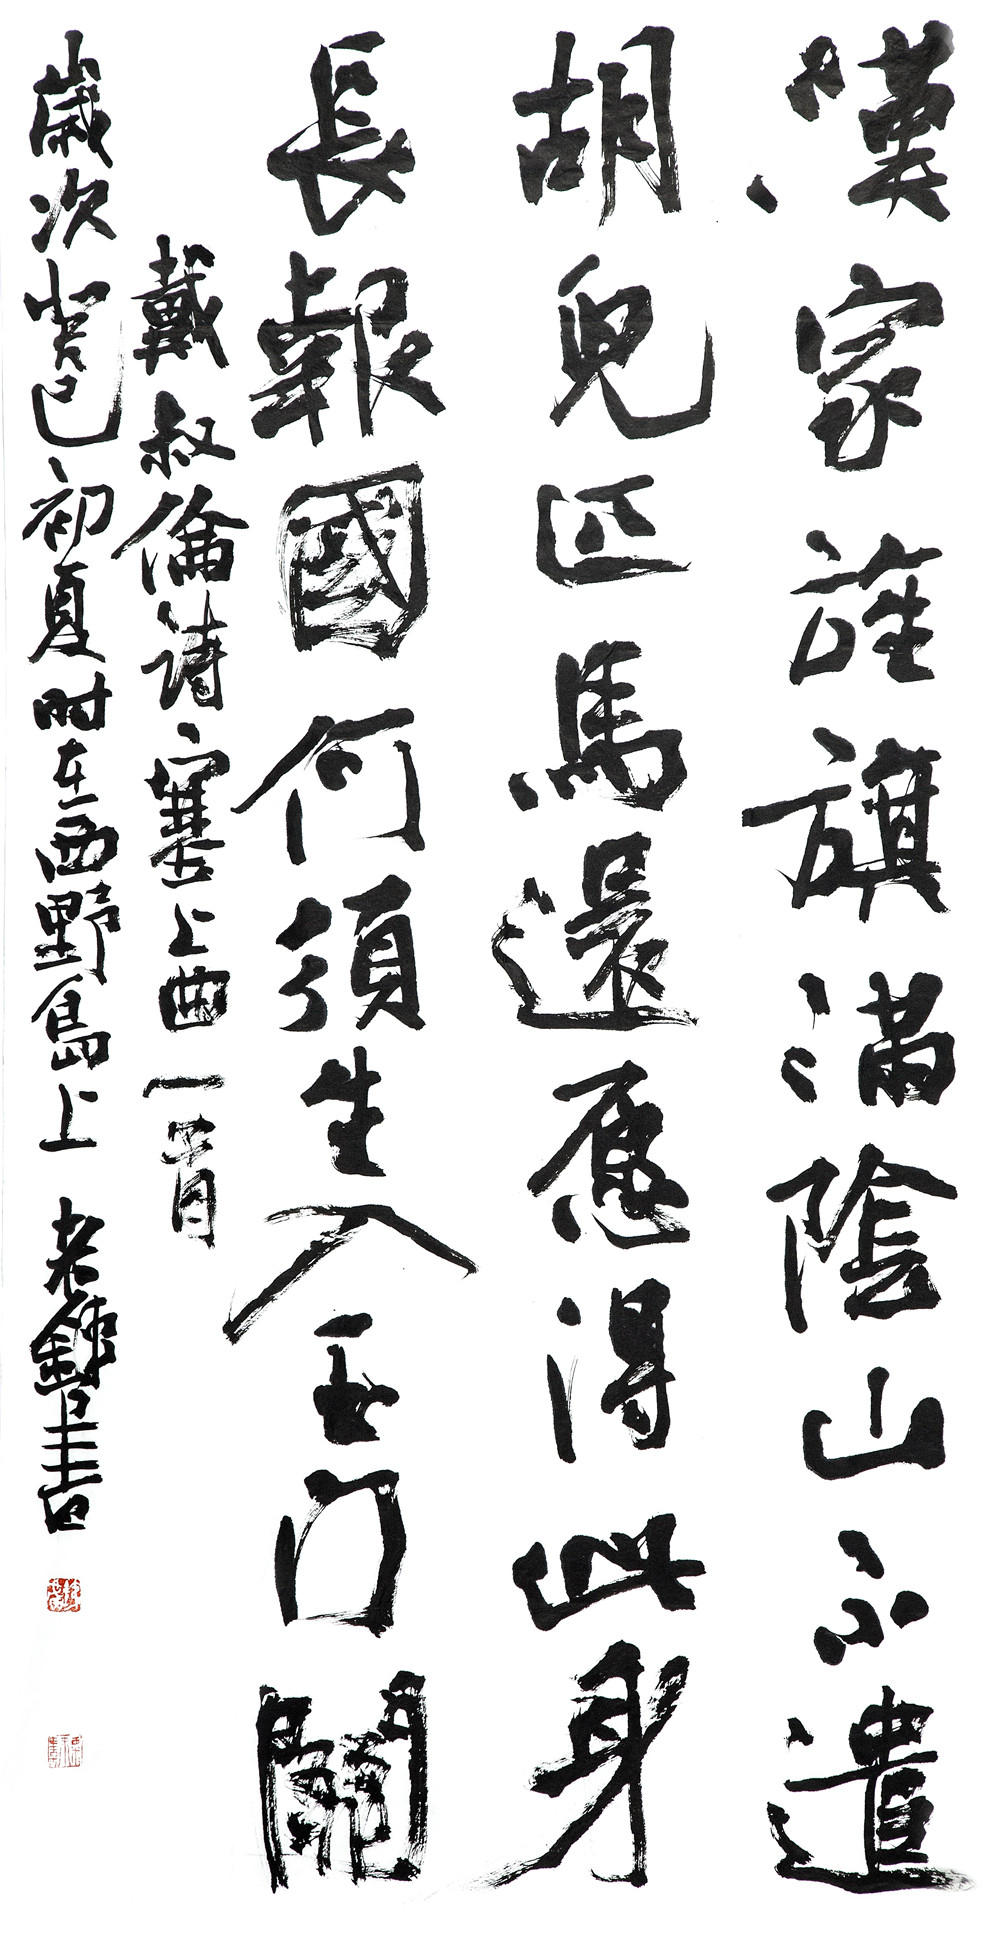 漢家旌旗滿陰山不遣
胡兒匹馬還愿得此身
長報國何須生入玉門關
戴叔倫诗塞上曲一首
歲次癸巳初夏时在西野島上 老書